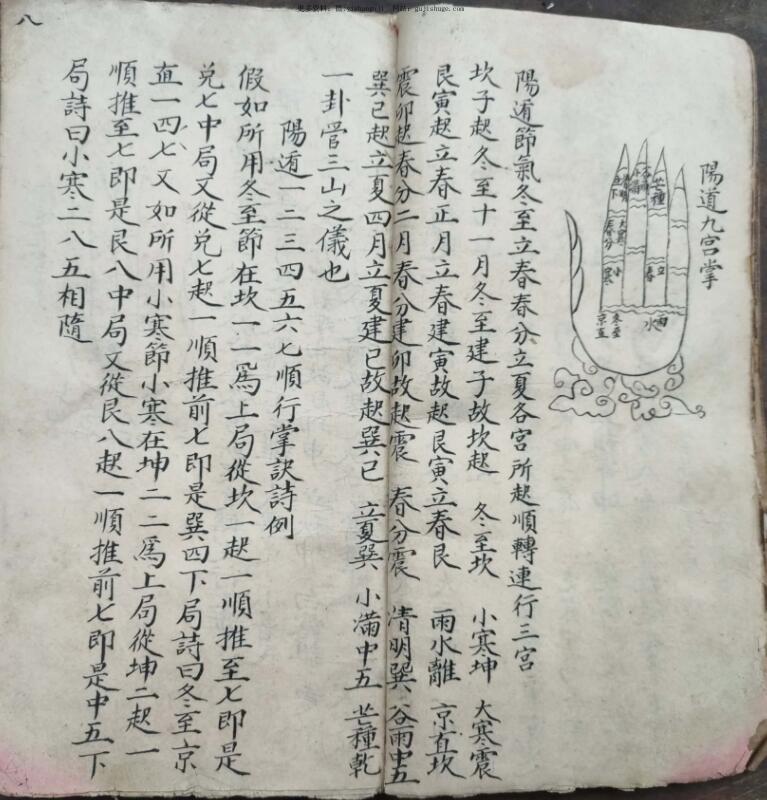 更多资料
陽遁九宮掌
芒種
立春
雨水
春分
大寒
小寒
冬至
京直
陽遁節氣冬至立春春分立夏各宮所起順轉連行三宮
坎子起冬至十一月冬至建子故坎起 冬至坎 小寒坤 大寒震
艮寅起立春正月立春建寅故起艮寅立春艮 雨水離 京直坎
震卯起春分二月春分建卯故起震 春分震 清明巽 谷雨中五
巽巳起立夏四月立夏建巳故起巽巳 立夏巽 小滿中五 芒種乾
一卦管三山之儀也
陽遁一二三四五六七順行掌訣詩例
假如所用冬至節在坎一一爲上局從坎一起一順推至七即是
兑七中局又從兑七起一順推前七即是巽四下局詩曰冬至京
直一四七又如所用小寒節小寒在坤二二爲上局從坤二起一
順推至七即是艮八中局又從艮八起一順推前七即是中五下
局詩曰小寒二八五相隨
八